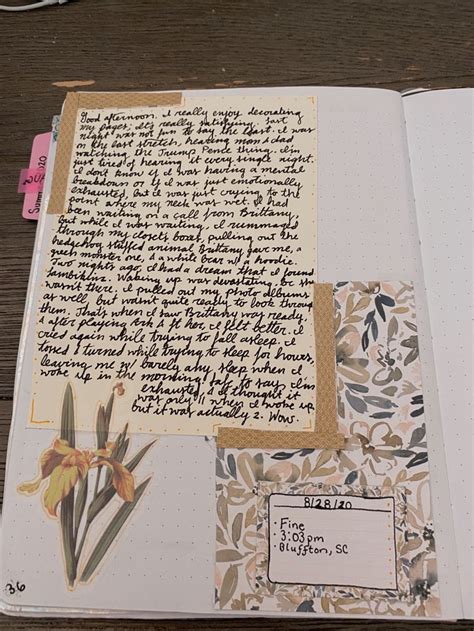 Good afternoon. I really enjoy decorating
my pages, it's really satisfying. Last
night was not fun to say the least. I was
on the last stretch, hearing mom & dad
watching the Trump Pence thing. I'm
just tired of hearing it every single night.
I don't know if I was having a mental
breakdown or if I was just emotionally
exhausted, but I was just crying to the
point where my neck was wet. I had
been waiting on a call from Brittany,
but while I was waiting, I rummaged
through my closet's boxes, pulling out the
hedgehog stuffed animal Brittany gave me, a
green monster one, & a white bear w/ a hoodie.
Two nights ago, I had a dream that I found
Lambikinz. Waking up was devastating, bc she
wasn't there. I pulled out my photo albums
as well, but wasn't quite ready to look through
them. That's when I saw Brittany was ready.
& after playing Ark & ft her, I felt better. I
cried again while trying to fall asleep. I
tossed & turned while trying to sleep for hours,
leaving me w/ barely any sleep when I
woke up in the morning. Safe to say I'm
exhausted. & I thought it
was only 11 when I woke up,
but it was actually 2. Wow.
8/28/20
· Fine
· 3:03pm
· Bluffton, SC
36